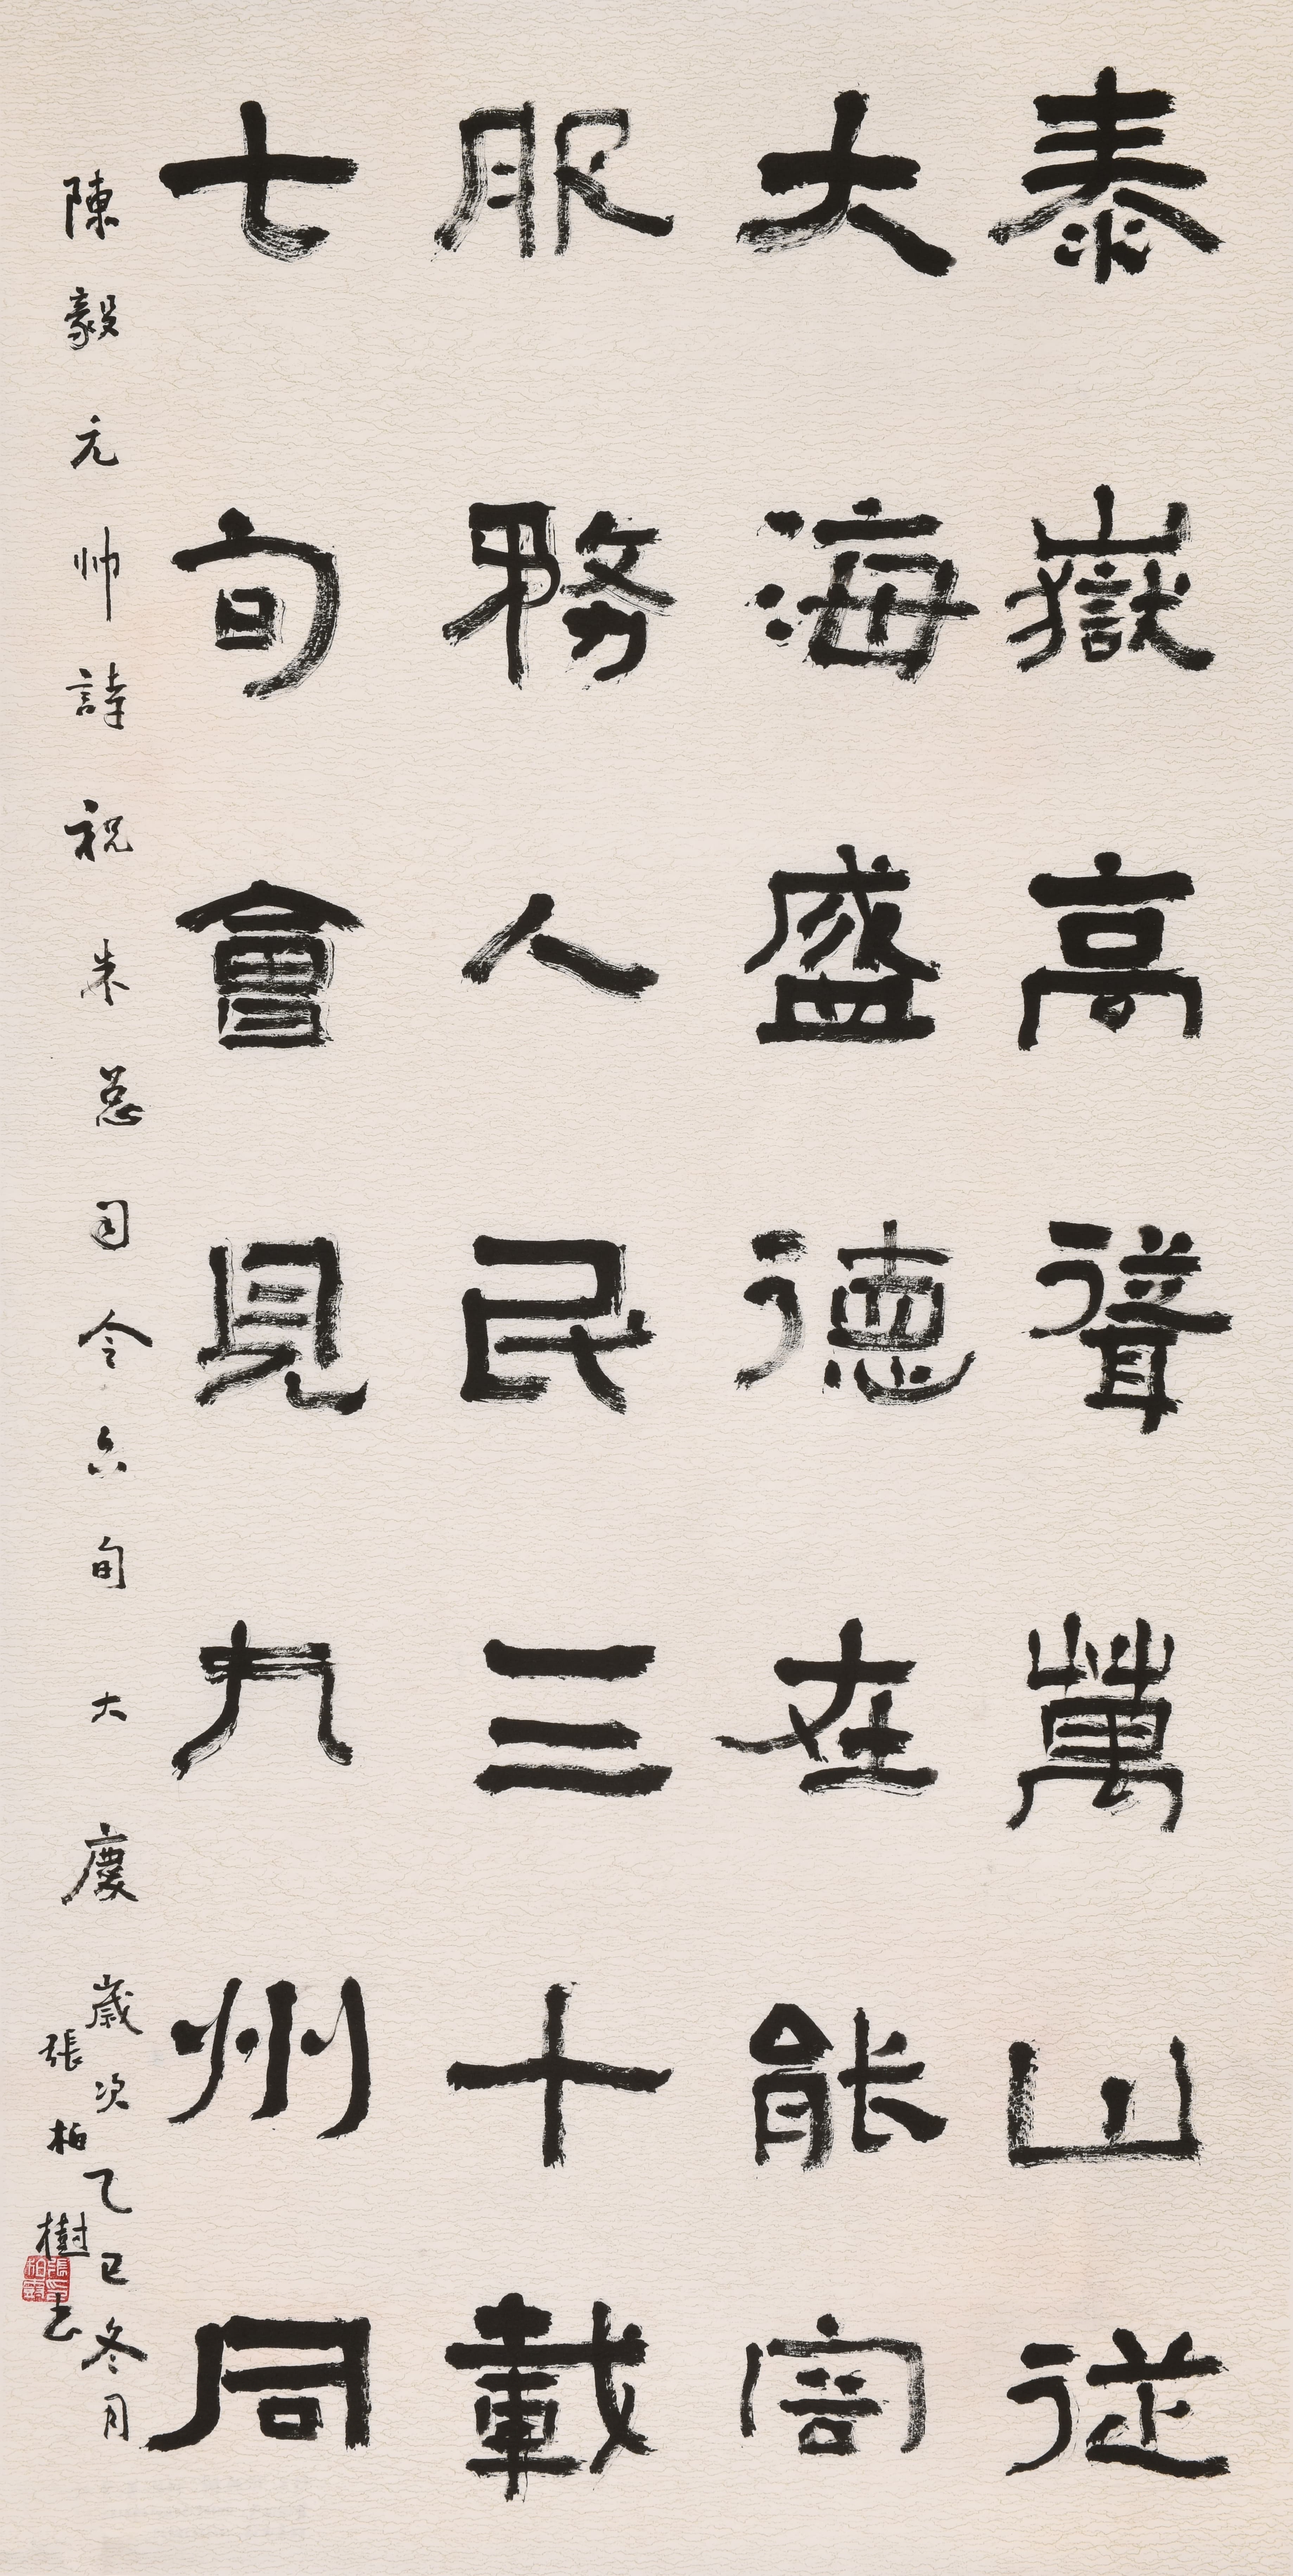 泰嶽高聳萬山從
大海盛德在能容
服務人民三十載
七旬會見九州同
陳毅元帅詩祝朱总司令六旬大慶歲次乙巳冬月
張柏樹书